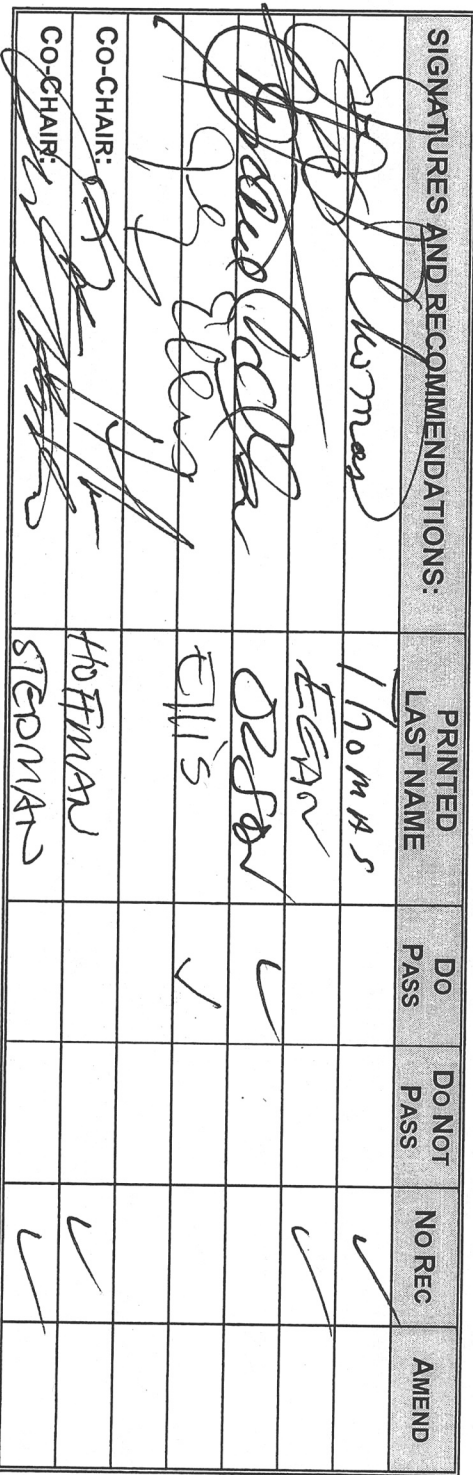 SIGNATURES AND RECOMMENDATIONS: PRINTED LAST NAME DO PASS DO NOT PASS NO REC AMEND
Thomas Thomas ✓
EGAN ✓
Olson ✓
Ellis ✓
CO-CHAIR: HOFFMAN ✓
CO-CHAIR: STEDMAN ✓